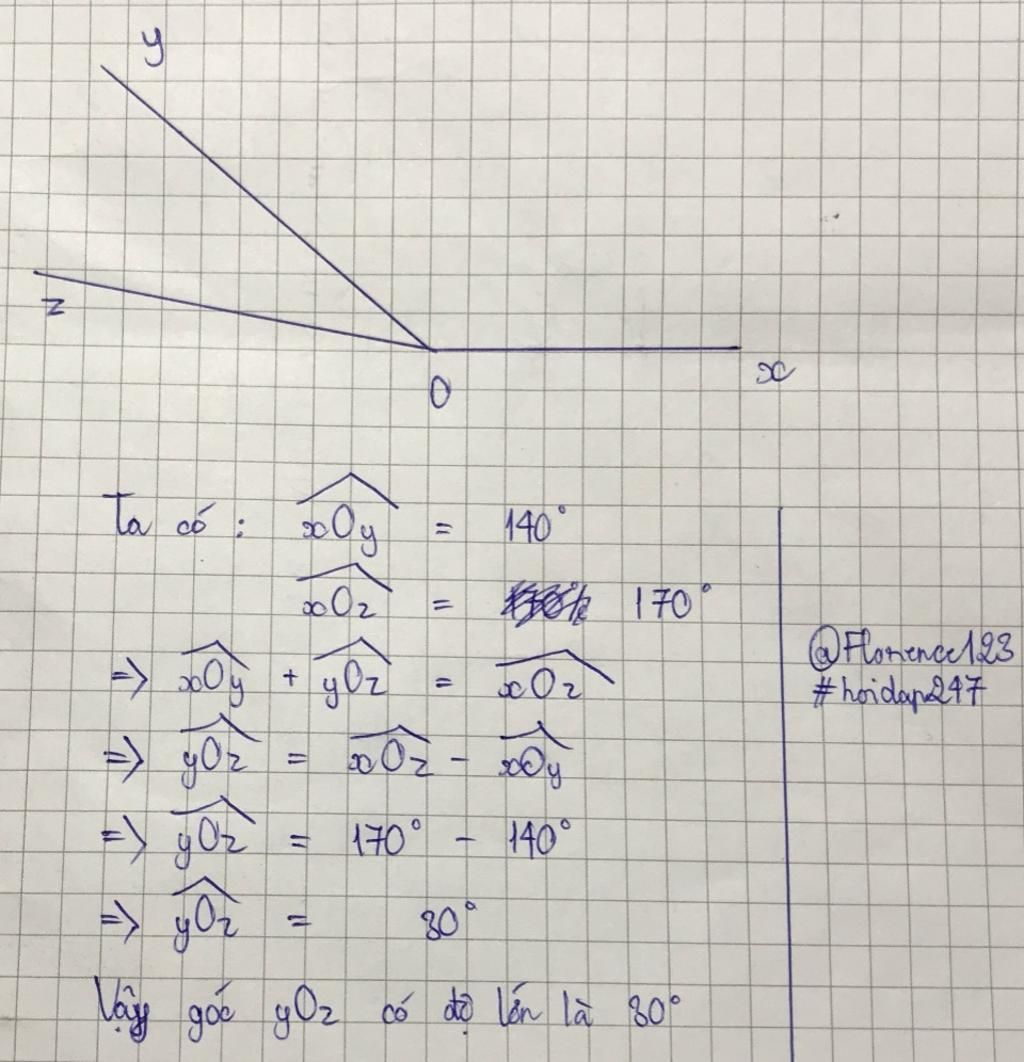 y
z
O
x
Ta có : xOy = 140°
xOz = 170°
=> xOy + yOz = xOz
=> yOz = xOz - xOy
=> yOz = 170° - 140°
=> yOz = 30°
Vậy góc yOz có độ lớn là 30°
@Florence123
#hoidap247